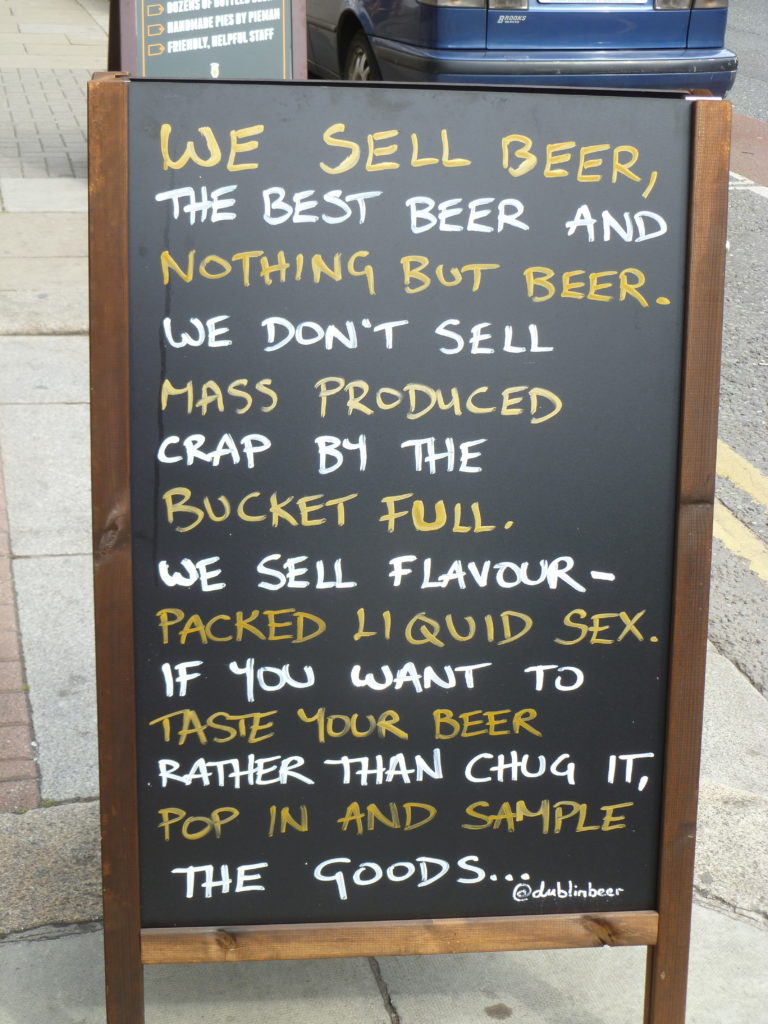 DOZENS OF BOTTLED
HANDMADE PIES BY PIEMAN
FRIENDLY, HELPFUL STAFF
BROOKS
WE SELL BEER,
THE BEST BEER AND
NOTHING BUT BEER.
WE DON'T SELL
MASS PRODUCED
CRAP BY THE
BUCKET FULL.
WE SELL FLAVOUR-
PACKED LIQUID SEX.
IF YOU WANT TO
TASTE YOUR BEER
RATHER THAN CHUG IT,
POP IN AND SAMPLE
THE GOODS...
@dublinbeer